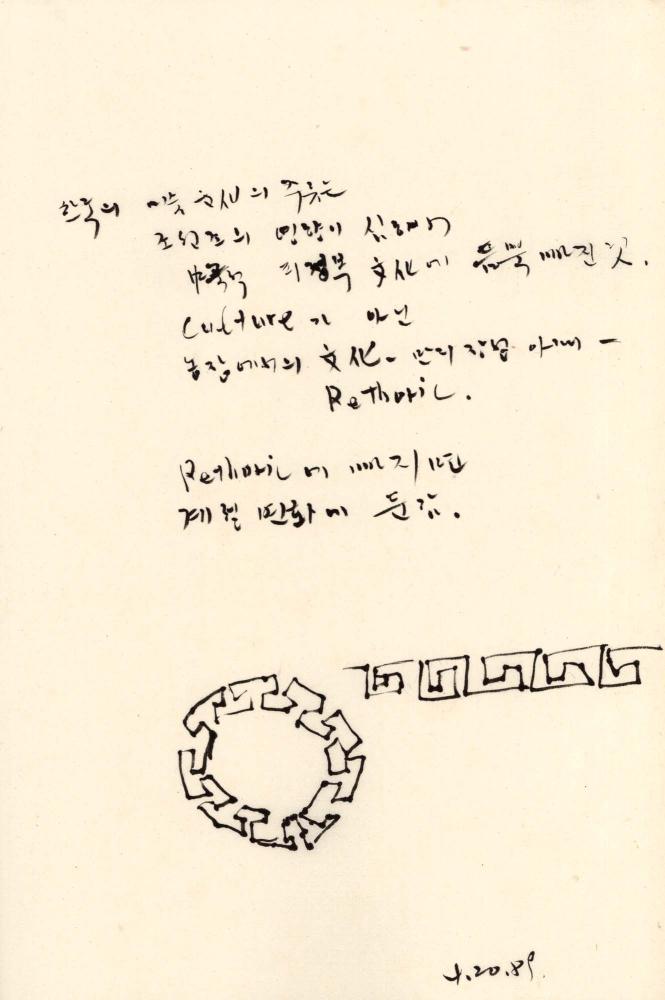 한국의 미술 文化의 주류는
조선조의 영향이 심해서
피정복 文化에 듬뿍 빠진 것.
Culture가 아닌
농장에서의 文化-
Rethoric.
Rethoric에 빠지면
계절 변화에 둔감.
4.20.89.